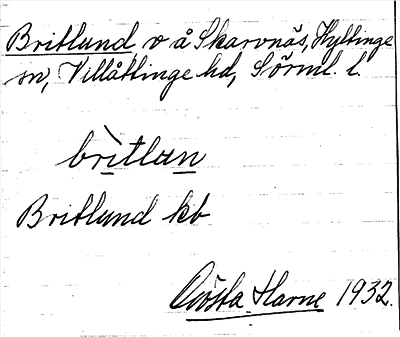 Britlund, v å Skarvnäs, Hyltinge
sn, Villåttinge hd, Sörml. l.
britlun
Britlund kb
Gösta Harne 1932.